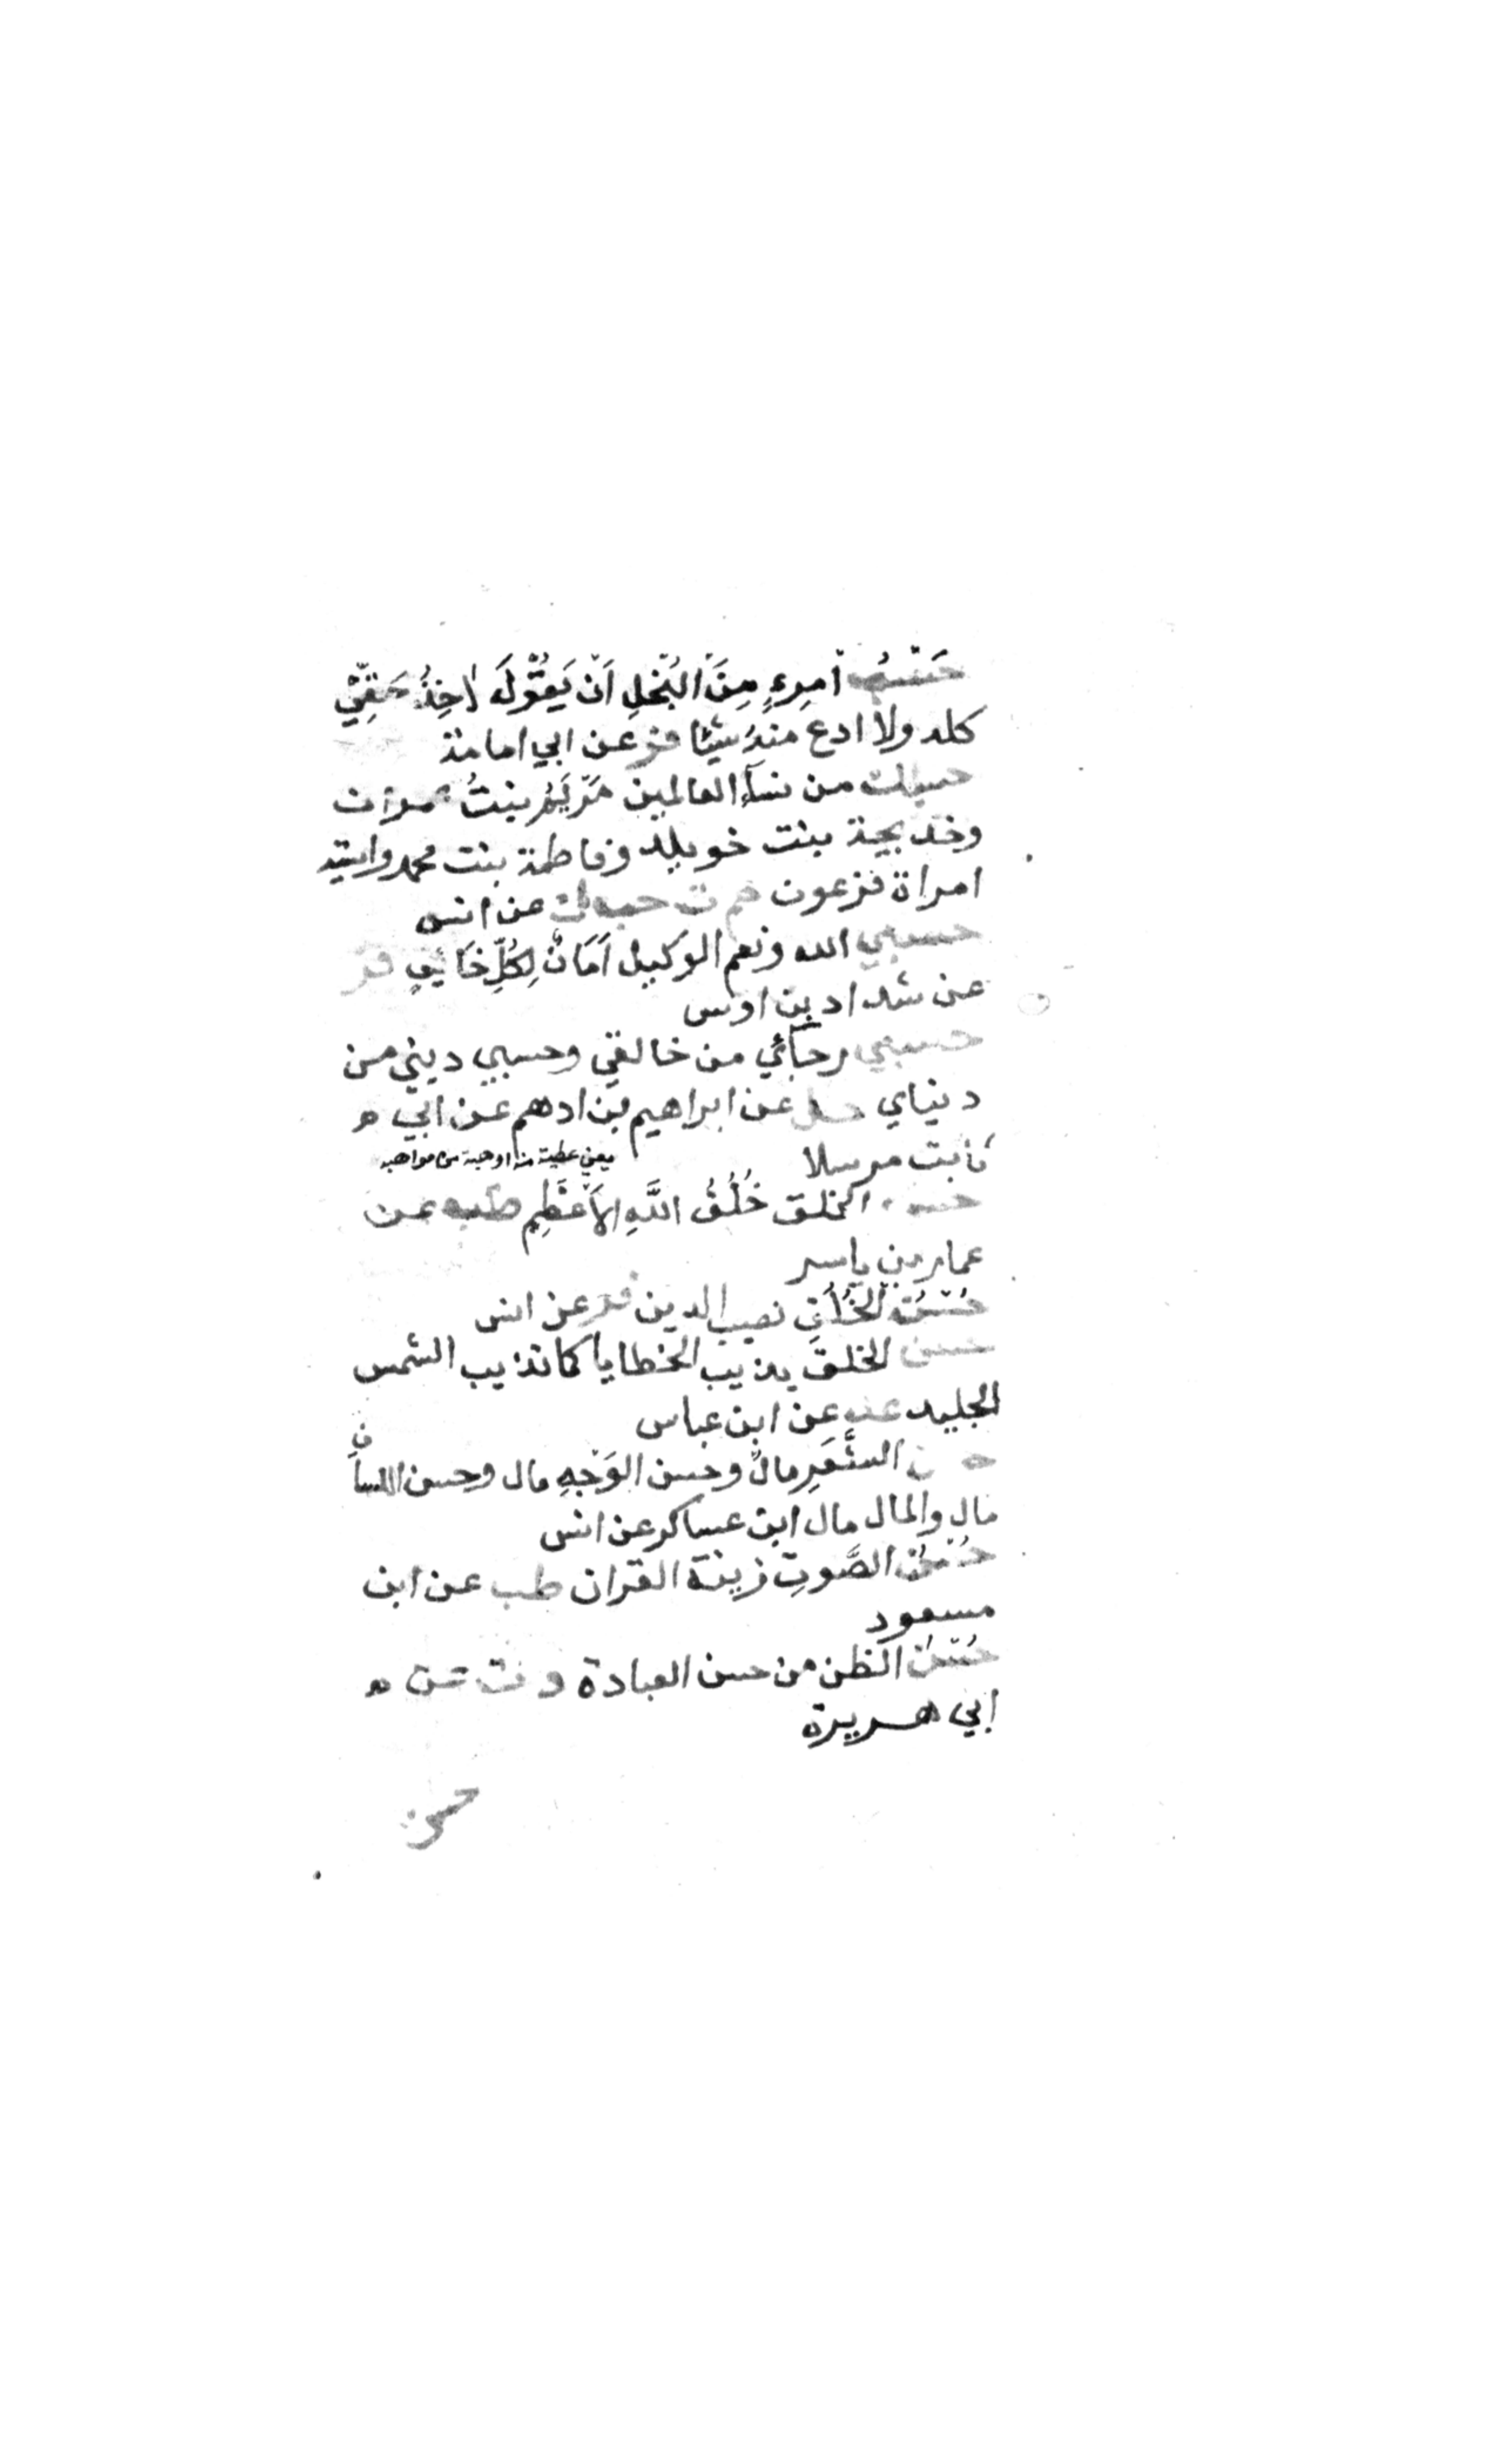 حَسْبُ امرِءٍ مِنَ البُخلِ اَنْ يَقُولَ اٰخِذُ حَقِّيْ
كله ولا ادع منهُ شيئا فر عن ابي امامة
حسبك من نسآءِ العالمين مَرْيَمُ بنتُ عمران
وخديجة بنت خويلد وفاطمة بنت محمد واسية
امراة فرعون حم ت حب ك عن انس
حسبي الله ونعم الوكيل اَمَانٌ لِكُلِّ خَائِفٍ فر
عن شداد بن اوس
حسبي رجآئي من خالقي وحسبي ديني من
دنياي حل عن ابراهيم بن ادهم عن ابي ه
ثابت مرسلا
يعني عطية منه او هبة من مواهبه
حسن الخلق خُلُقُ اللَّهِ الاَعْظَمِ طب عن
عمار بن ياسر
حُسْنُ الخُلُقِ نصيب الدين فر عن انس
حسن الخلق يذيب الخطايا كما تذيب الشمس
الجليد عد عن ابن عباس
حسن الشَّعَرِ مالٌ وحسن الوَجْهِ مال وحسن اللسان
مال والمال مال ابن عساكر عن انس
حُسْنُ الصَّوتِ زينة القران طب عن ابن
مسعود
حُسْنُ الظن من حسن العبادة د ت عن ه
ابي هريرة
حسن